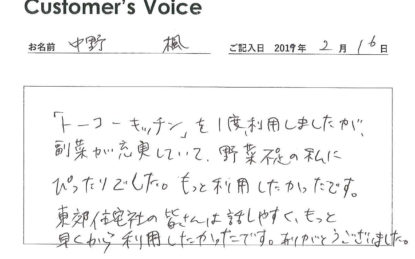 Customer's Voice
お名前 中野 楓 ご記入日 2019年 2月 16日
「トーコーキッチン」を1度利用しましたが、
副菜が充実していて、野菜不足の私に
ぴったりでした。もっと利用したかったです。
東郊住宅社の皆さんは話しやすく、もっと
早くから利用したかったです。ありがとうございました。